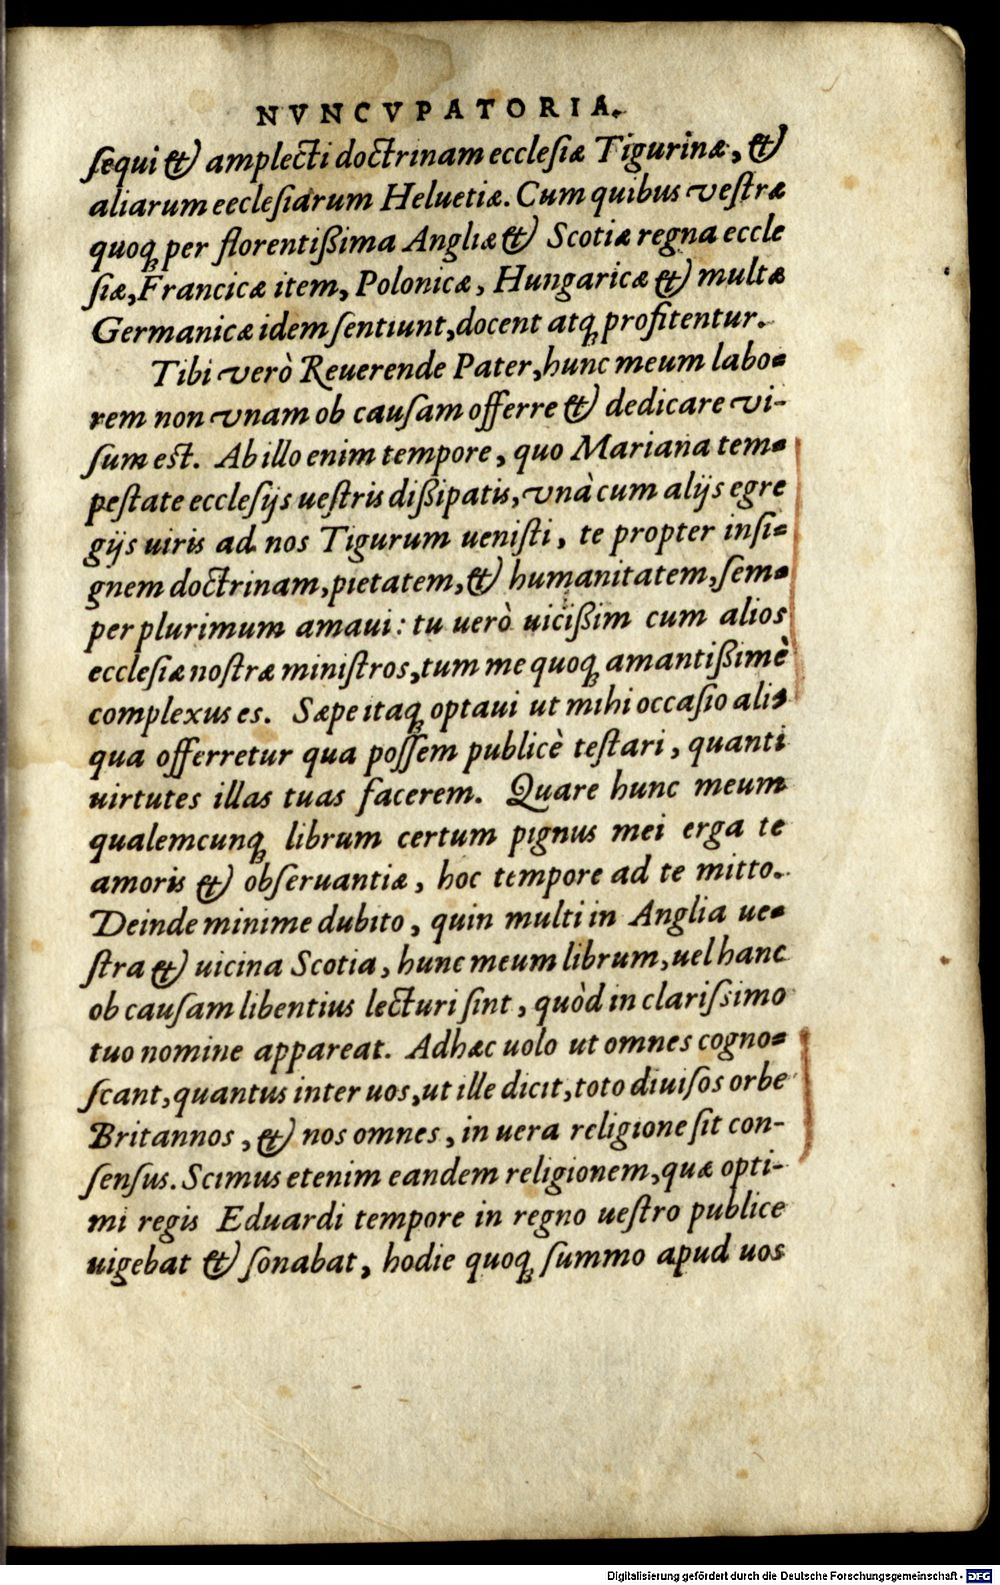 NVNCVPATORIA.
ſequi & amplecti doctrinam eccleſiæ Tigurinæ, &
aliarum eecleſiarum Heluetiæ. Cum quibus veſtræ
quoq; per florentißima Angliæ & Scotiæ regna eccle
ſiæ, Francicæ item, Polonicæ, Hungaricæ & multæ
Germanicæ idem ſentiunt, docent atq; profitentur.
Tibi verò Reuerende Pater, hunc meum labo=
rem non vnam ob cauſam offerre & dedicare vi-
ſum est. Ab illo enim tempore, quo Mariana tem=
peſtate eccleſijs ueſtris dißipatis, vnà cum alijs egre
gijs uiris ad nos Tigurum ueniſti, te propter inſi=
gnem doctrinam, pietatem, & humanitatem, ſem=
per plurimum amaui: tu uerò uicißim cum alios
eccleſiæ noſtræ miniſtros, tum me quoq; amantißimè
complexus es. Sæpe itaq; optaui ut mihi occaſio ali=
qua offerretur qua poſſem publicè teſtari, quanti
uirtutes illas tuas facerem. Quare hunc meum
qualemcunq; librum certum pignus mei erga te
amoris & obſeruantiæ, hoc tempore ad te mitto.
Deinde minime dubito, quin multi in Anglia ue=
ſtra & uicina Scotia, hunc meum librum, uel hanc
ob cauſam libentius lecturi ſint, quòd in clariſsimo
tuo nomine appareat. Adhæc uolo ut omnes cogno=
ſcant, quantus inter uos, ut ille dicit, toto diuiſos orbe
Britannos, & nos omnes, in uera religione ſit con-
ſenſus. Scimus etenim eandem religionem, quæ opti-
mi regis Eduardi tempore in regno ueſtro publice
uigebat & ſonabat, hodie quoq; ſummo apud uos
Digitalisierung gefördert durch die Deutsche Forschungsgemeinschaft - DFG